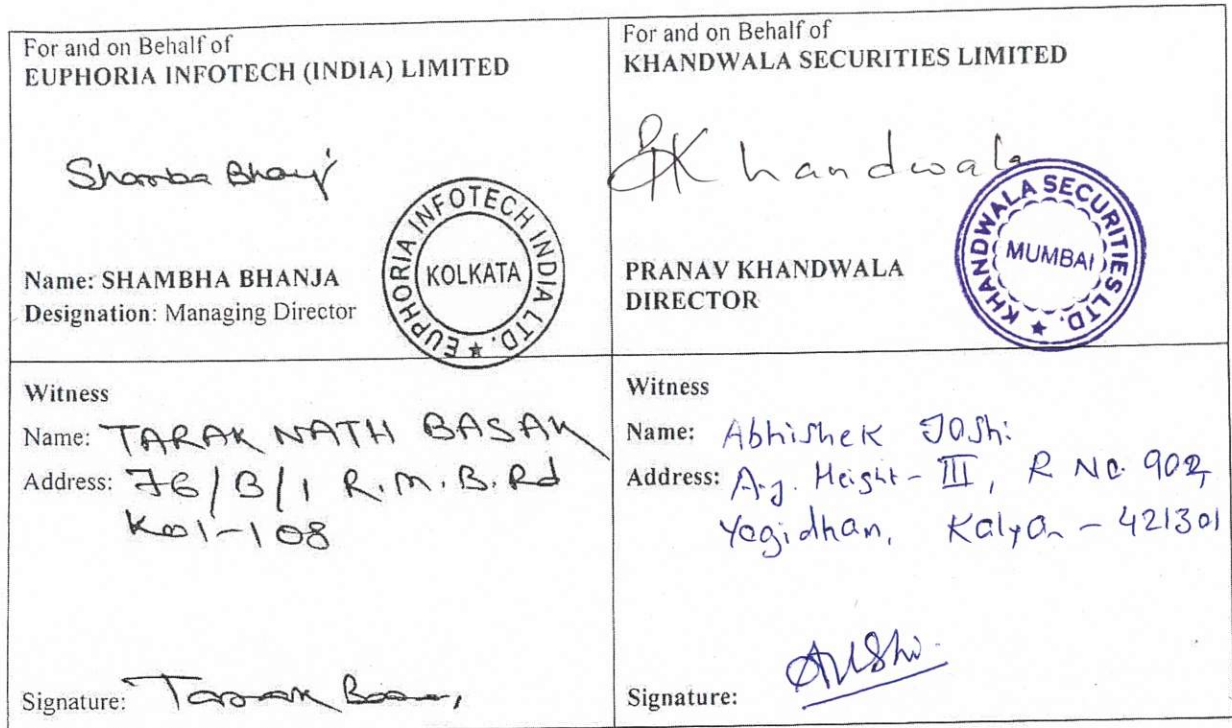 For and on Behalf of
EUPHORIA INFOTECH (INDIA) LIMITED
Shamba Bhanja
EUPHORIA INFOTECH INDIA LTD. ★
KOLKATA
Name: SHAMBHA BHANJA
Designation: Managing Director
For and on Behalf of
KHANDWALA SECURITIES LIMITED
PKhandwala
KHANDWALA SECURITIES LTD. ★
MUMBAI
PRANAV KHANDWALA
DIRECTOR
Witness
Name: TARAK NATH BASAK
Address: 76/B/1 R.M.B.Rd
Kol-108
Signature: Tarak Basak
Witness
Name: Abhishek Joshi
Address: A.j. Height-III, R No. 902
Yogidham, Kalyan - 421301
Signature: AJoshi